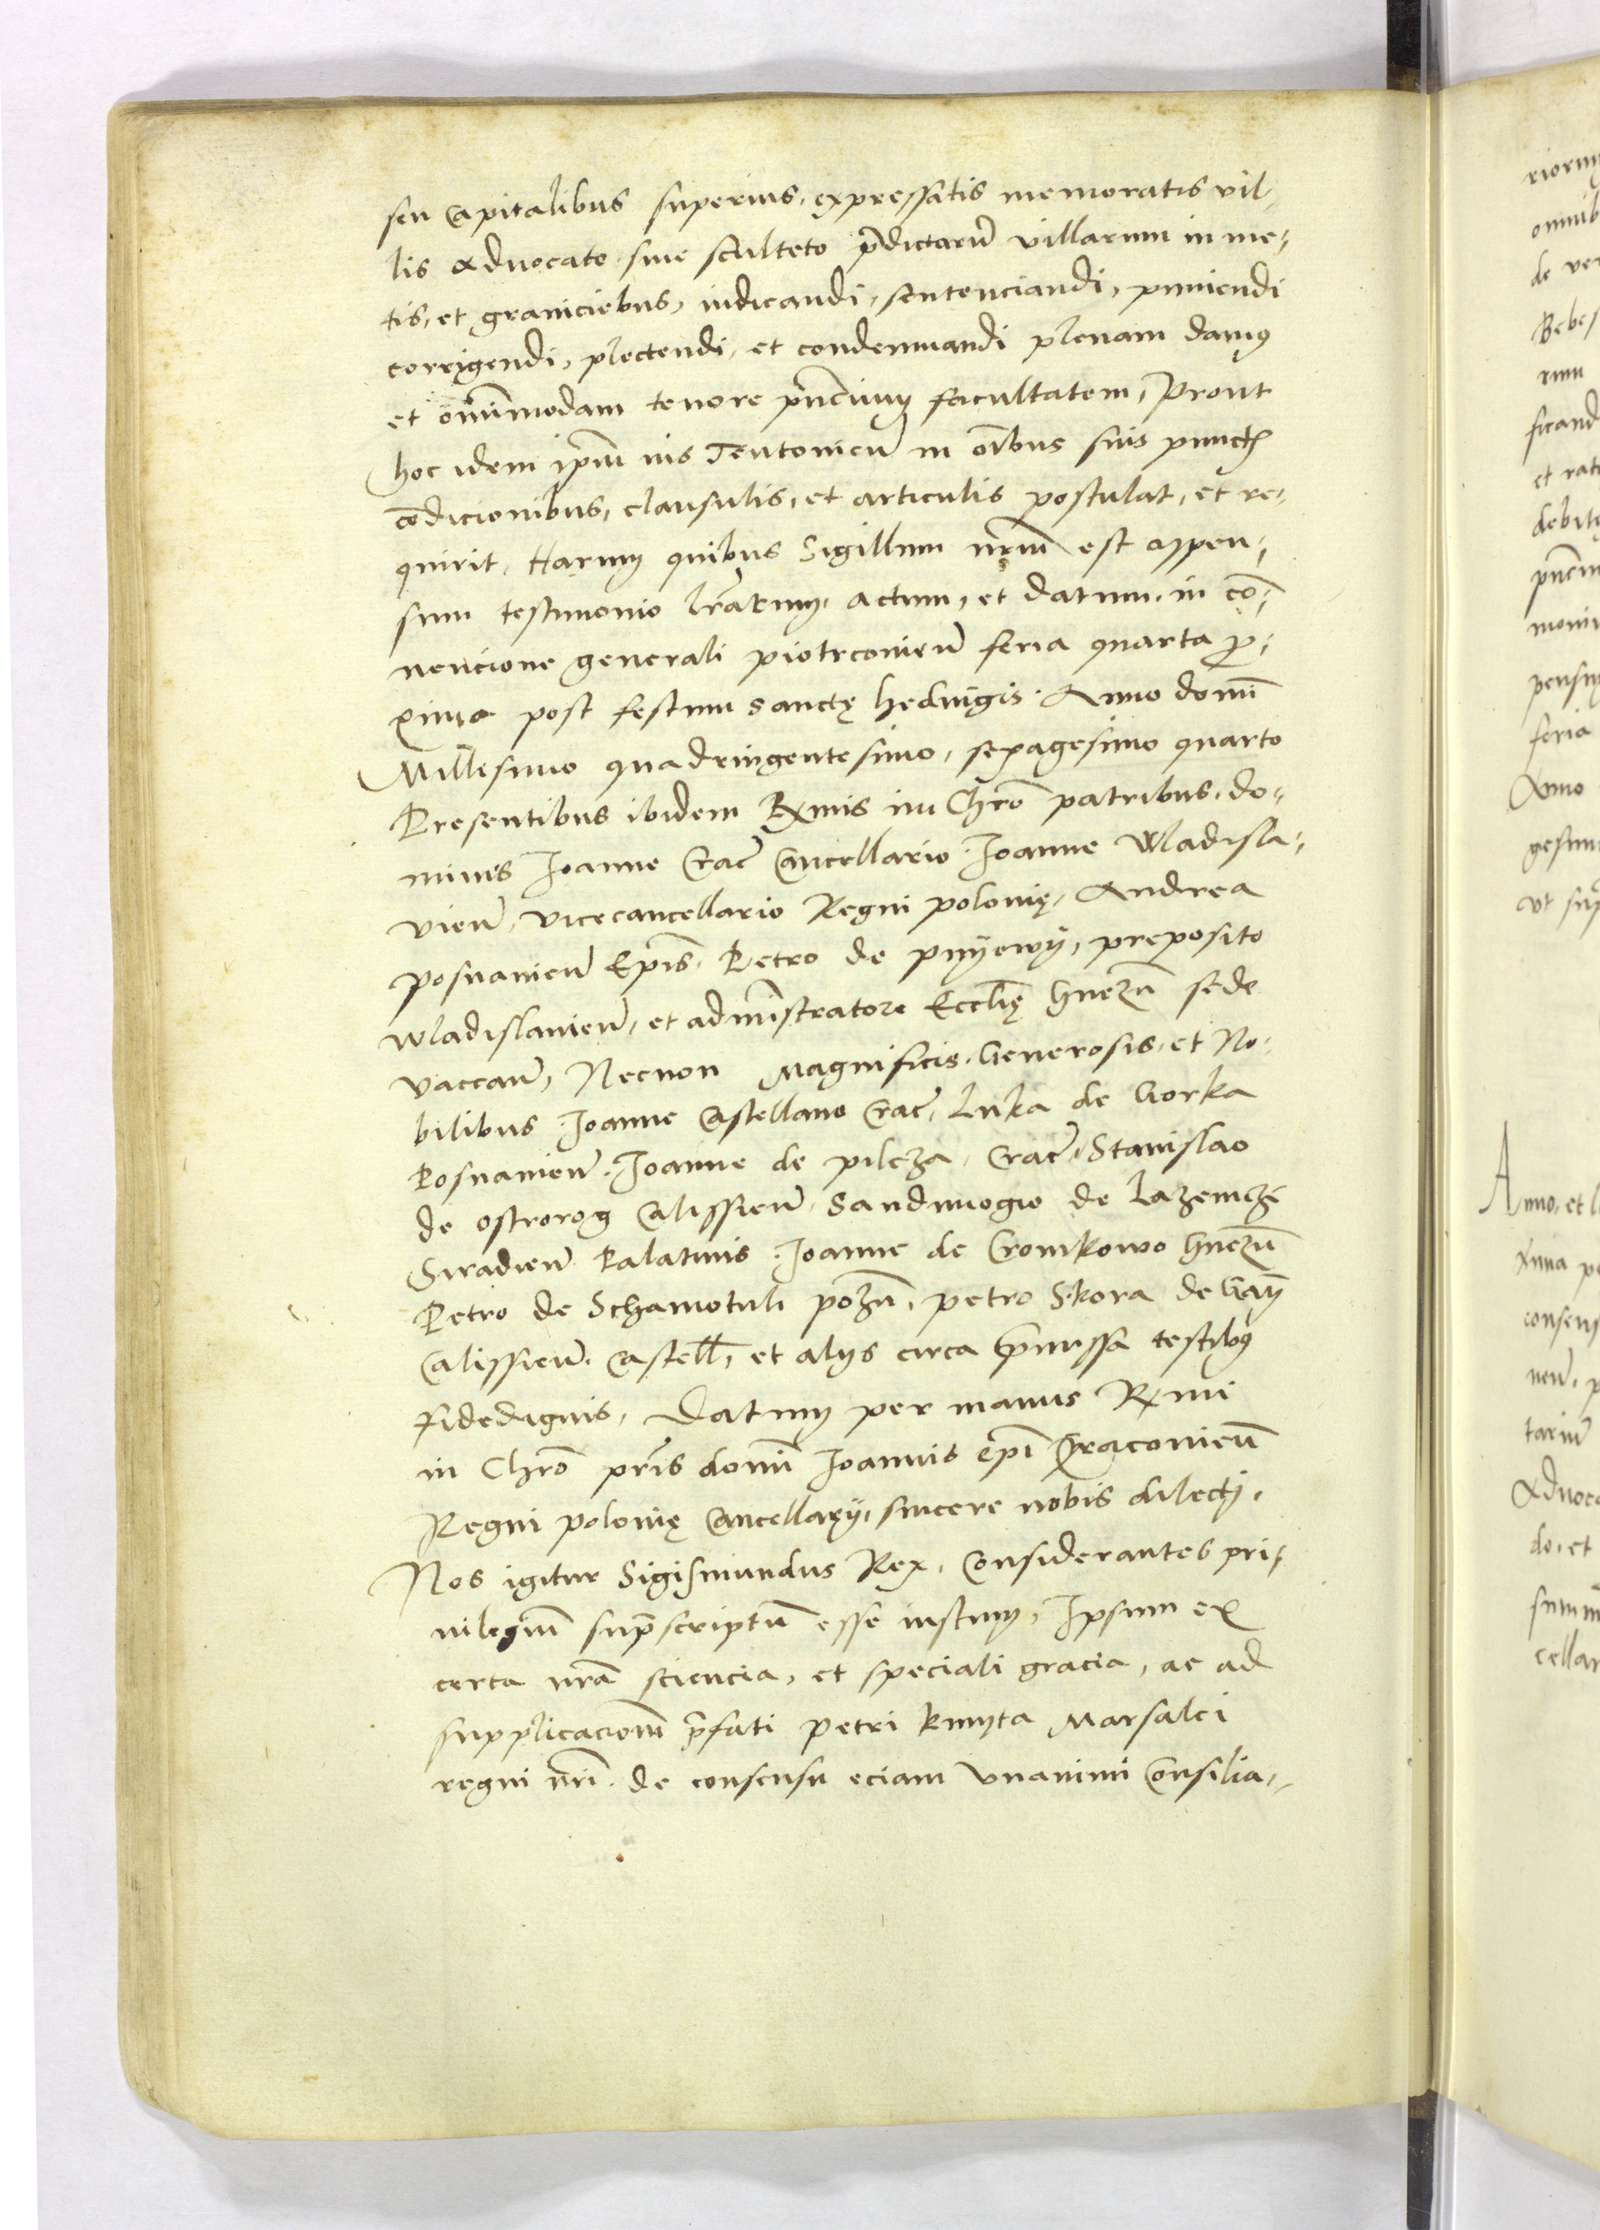 seu capitalibus superius expressatis memoratis vil-
lis Advocato sive sculteto p̄dictarū villarum in me-
tis, et graniciebus, iudicandi, sentenciandi, puniendi
corrigendi, plectendi, et condemnandi plenam damus
et om̄imodam tenore p̄ncium facultatem, Prout
hoc idem ip̄m ius Teutonicū in oībus suis punctis
cōdicionibus, clausulis, et articulis postulat, et re-
quirit, Harum quibus Sigillum nr̄um est appen-
sum testimonio lr̄arum, actum, et datum in cō-
nencione generali piotrconien̄ feria quarta p̄o-
xima post festum sanctę hedvigis. Anno domī
Millesimo quadringentesimo, sexagesimo quarto
Presentibus ibidem Rxmis inn Chro͞ patribus, do-
minis Joanne Crac̄ Cancellario Joanne Wladisla-
vien̄, vicecancellario Regni polonię, Andrea
posnanien̄ Ep̄is, Petro de pnyewy, preposito
wladislavien̄, et adm̄istratore Eccl̄ię Gnezn̄ sede
vaccan̄, Necnon Magnificis, Generosis, et No-
bilibus Joanne Castellano Crac̄, Luka de Gorka
Posnanien̄ Joanne de pilcza, Crac̄, Stanislao
de ostrorog Calissien̄ Sandivogio de Lazenicze
Siradien̄ Palatinis Joanne de Cronikowo Gnezn̄
Petro de Schamotuli pozn̄, petro Skora de Gay
Calissien̄ Castell̄, et alijs circa p̄missa testibus
fidedignis, Datum per manus Rxmi
in Chro͞ pr̄is domī Joannis ep̄i Cracovien̄
Regni polonię Cancellarij, sincere nobis dilecti,
Nos igitur Sigismundus Rex, Considerantes pri-
vilegiū sup̄scriptū esse iustum, Ipsum ex
certa nr̄a sciencia, et speciali gracia, ac ad
supplicacionē p̄fati petri kmyta Marsalci
regni nr̄i de consensu eciam vnanimi Consilia-